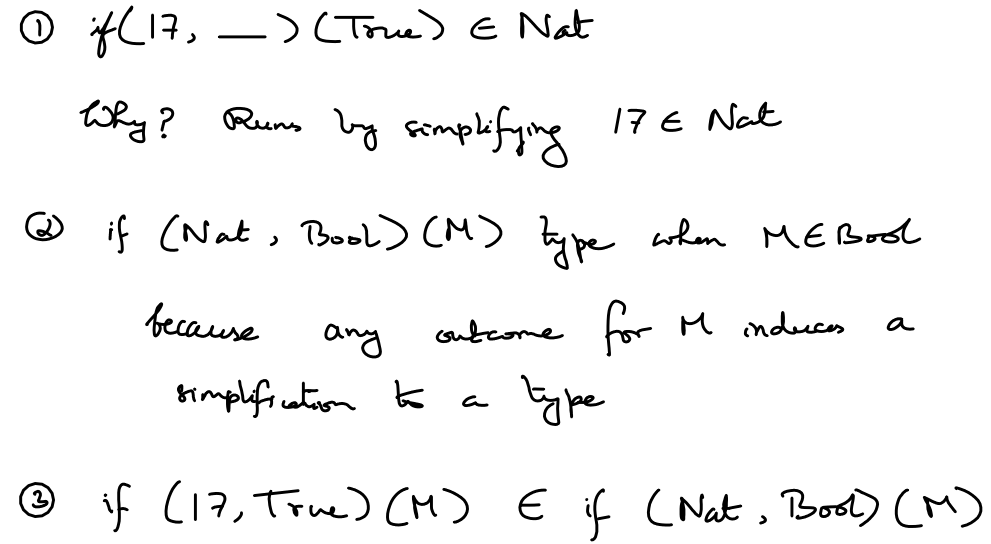 ① if (17, __) (True) ∈ Nat
Why? Runs by simplifying 17 ∈ Nat
② if (Nat, Bool) (M) type when M ∈ Bool
because any outcome for M induces a
simplification to a type
③ if (17, True) (M) ∈ if (Nat, Bool) (M)